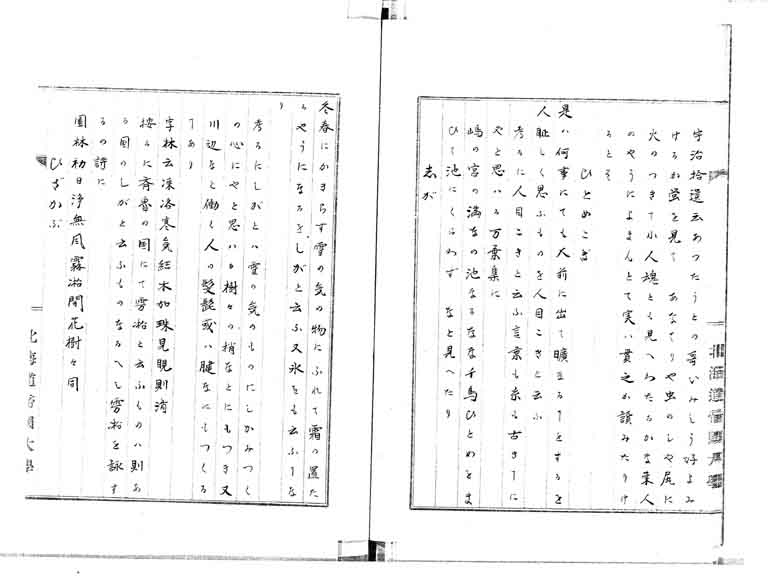 宇治拾遺云あつたうとの哥いみしう好よみ
けるか蛍を見て あなてりや虫のしや尻に
火のつきて小人魂とも見へわたるかな案人
のやうによまんとて実ハ貫之か讀みたりけ
るとそ
ひとめこぎ
是ハ何事にても人前に出て曠まるヿをするを
人恥しく思ふものを人目こきと云ふ
考るに人目こきと云ふ言葉も余も古きヿに
やと思ハる万葉集に
嶋の宮の満なの池なるなな千鳥ひとめをま
ひて池にくらわず なと見へたり
志が
北海道帝國大學
冬春にかきらす雪の気の物にふれて霜の置た
るやうになるをしがと云ふ又氷をも云ふヿな
り
考るにしがとハ雪の気のものにしかみつく
の心にやと思ハる樹々の梢なとにもつき又
川辺なと働く人の髪髭或ハ腱なにもつくる
てあり
字林云凍洛寒気结木如珠見睍則消
按るに斉魯の国にて雰凇と云ふものハ則あ
る国のしがと云ふものなるへし雰凇を詠す
るの詩に
園林初日浄無風霧凇開花樹々同
ひざかぶ
北海道帝國大學